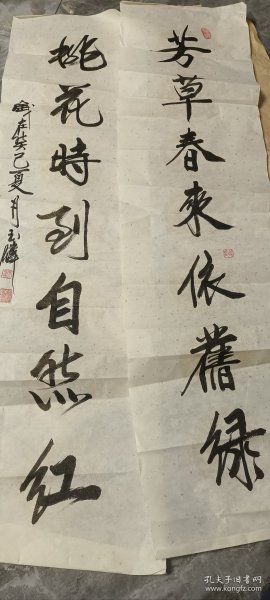 芳草春來依舊綠
桃花時到自然紅
歲在癸巳夏月玉麟
孔夫子旧书网
www.kongfz.com